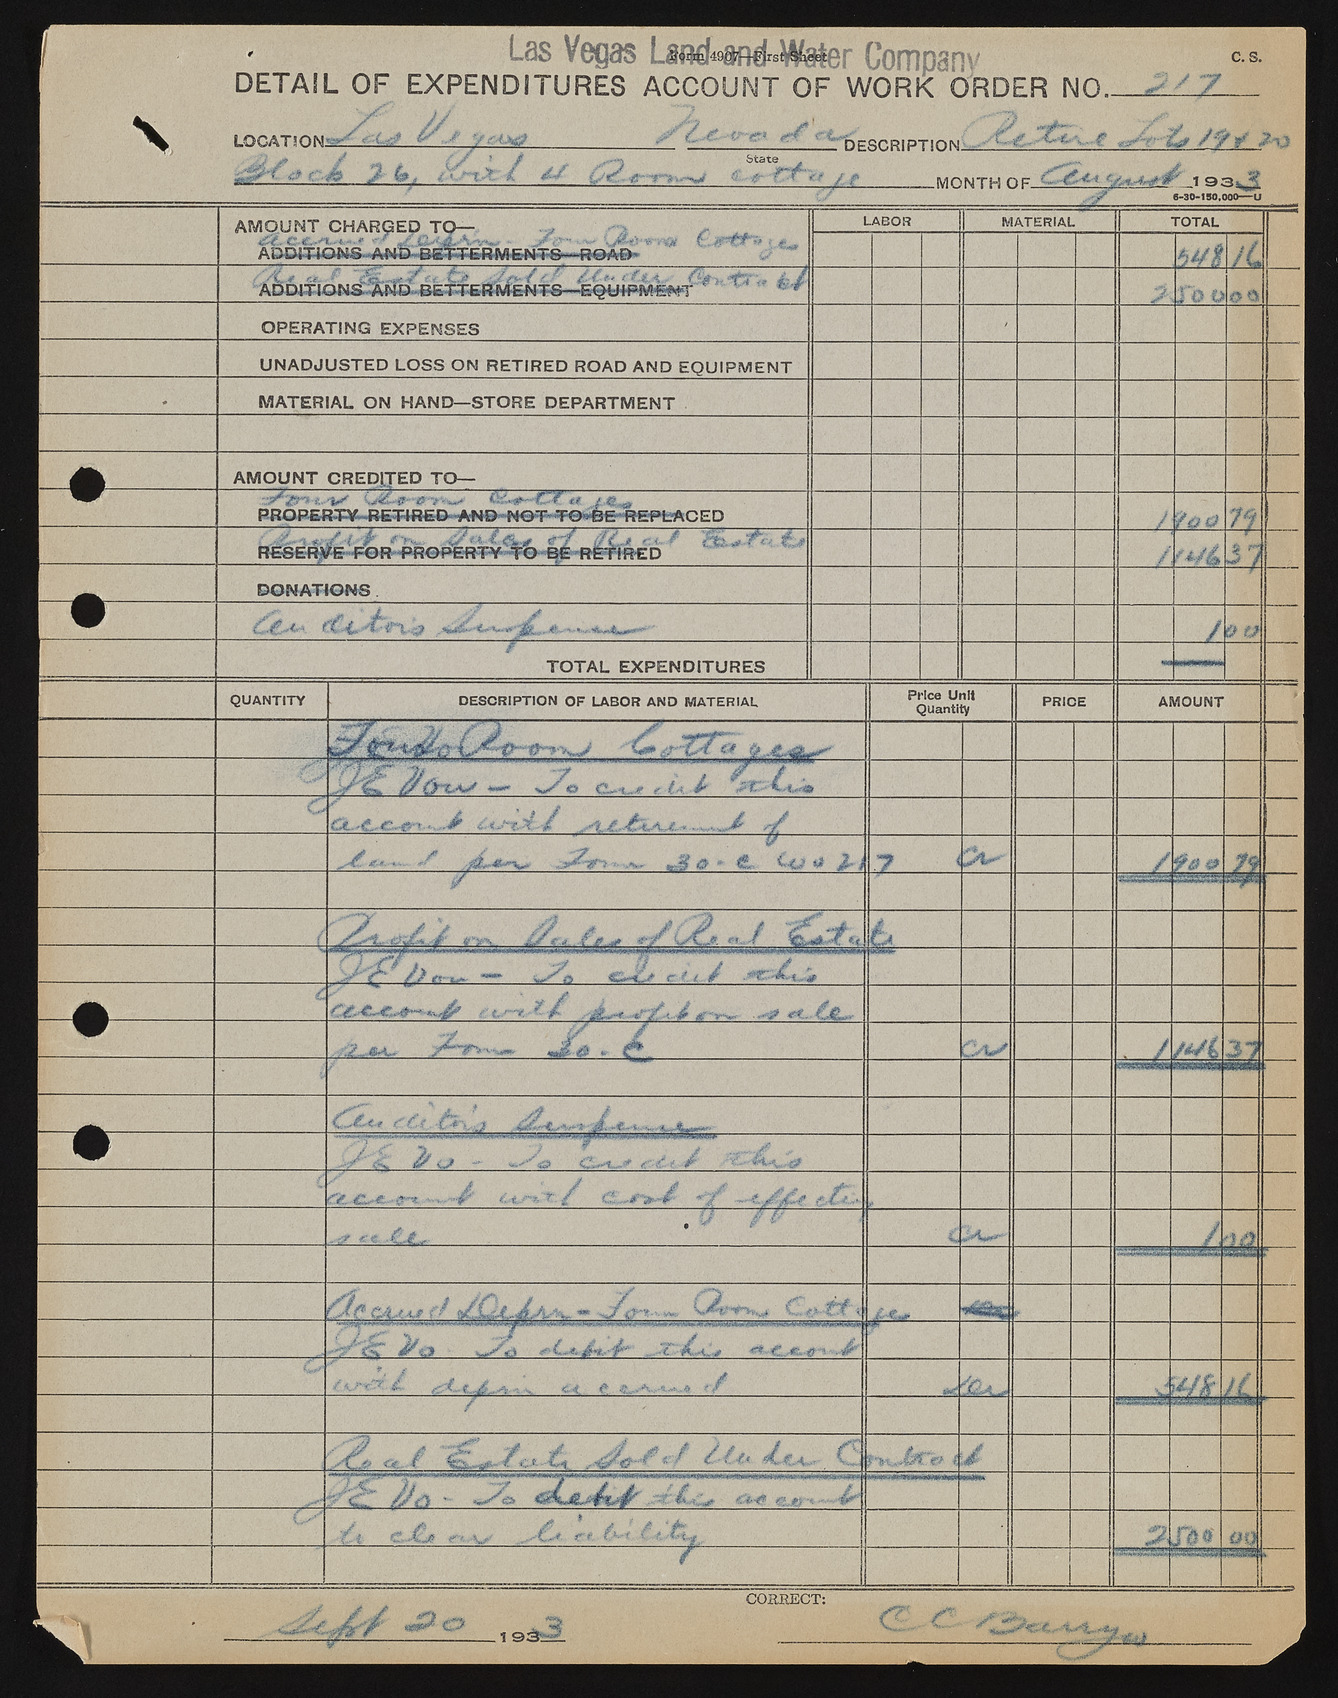 Las Vegas Land and Water Company
Form 4907—First Sheet
C. S.
DETAIL OF EXPENDITURES ACCOUNT OF WORK ORDER NO. 217
LOCATION Las Vegas Nevada DESCRIPTION Retire Lots 19 & 20
State
Block 26, with 4 Room cottage MONTH OF August 1933
6-30-150,000—U
AMOUNT CHARGED TO— LABOR MATERIAL TOTAL
Accrued Deprn - Four Room Cottages
ADDITIONS AND BETTERMENTS—ROAD 548 16
Real Estate Sold Under Contract
ADDITIONS AND BETTERMENTS—EQUIPMENT 2500 00
OPERATING EXPENSES
UNADJUSTED LOSS ON RETIRED ROAD AND EQUIPMENT
MATERIAL ON HAND—STORE DEPARTMENT
AMOUNT CREDITED TO—
Four Room Cottages
PROPERTY RETIRED AND NOT TO BE REPLACED 1900 79
Profit on Sales of Real Estate
RESERVE FOR PROPERTY TO BE RETIRED 1146 37
DONATIONS
Auditors Suspense 1 00
TOTAL EXPENDITURES
QUANTITY DESCRIPTION OF LABOR AND MATERIAL Price Unit Quantity PRICE AMOUNT
Four Room Cottages
JE Vou - To credit this
account with retirement of
land per Form 30-C WO 217 Cr 1900 79
Profit on Sales of Real Estate
JE Vou - To credit this
account with profit on sale
per Form 30-C Cr 1146 37
Auditors Suspense
JE Vo - To credit this
account with cost of effecting
sale Cr 1 00
Accrued Deprn - Four Room Cottages
JE Vo - To debit this account
with deprn accrued Dr 548 16
Real Estate Sold Under Contract
JE Vo - To debit this account
to clear liability 2500 00
CORRECT:
Sept 20 1933 C C Barry